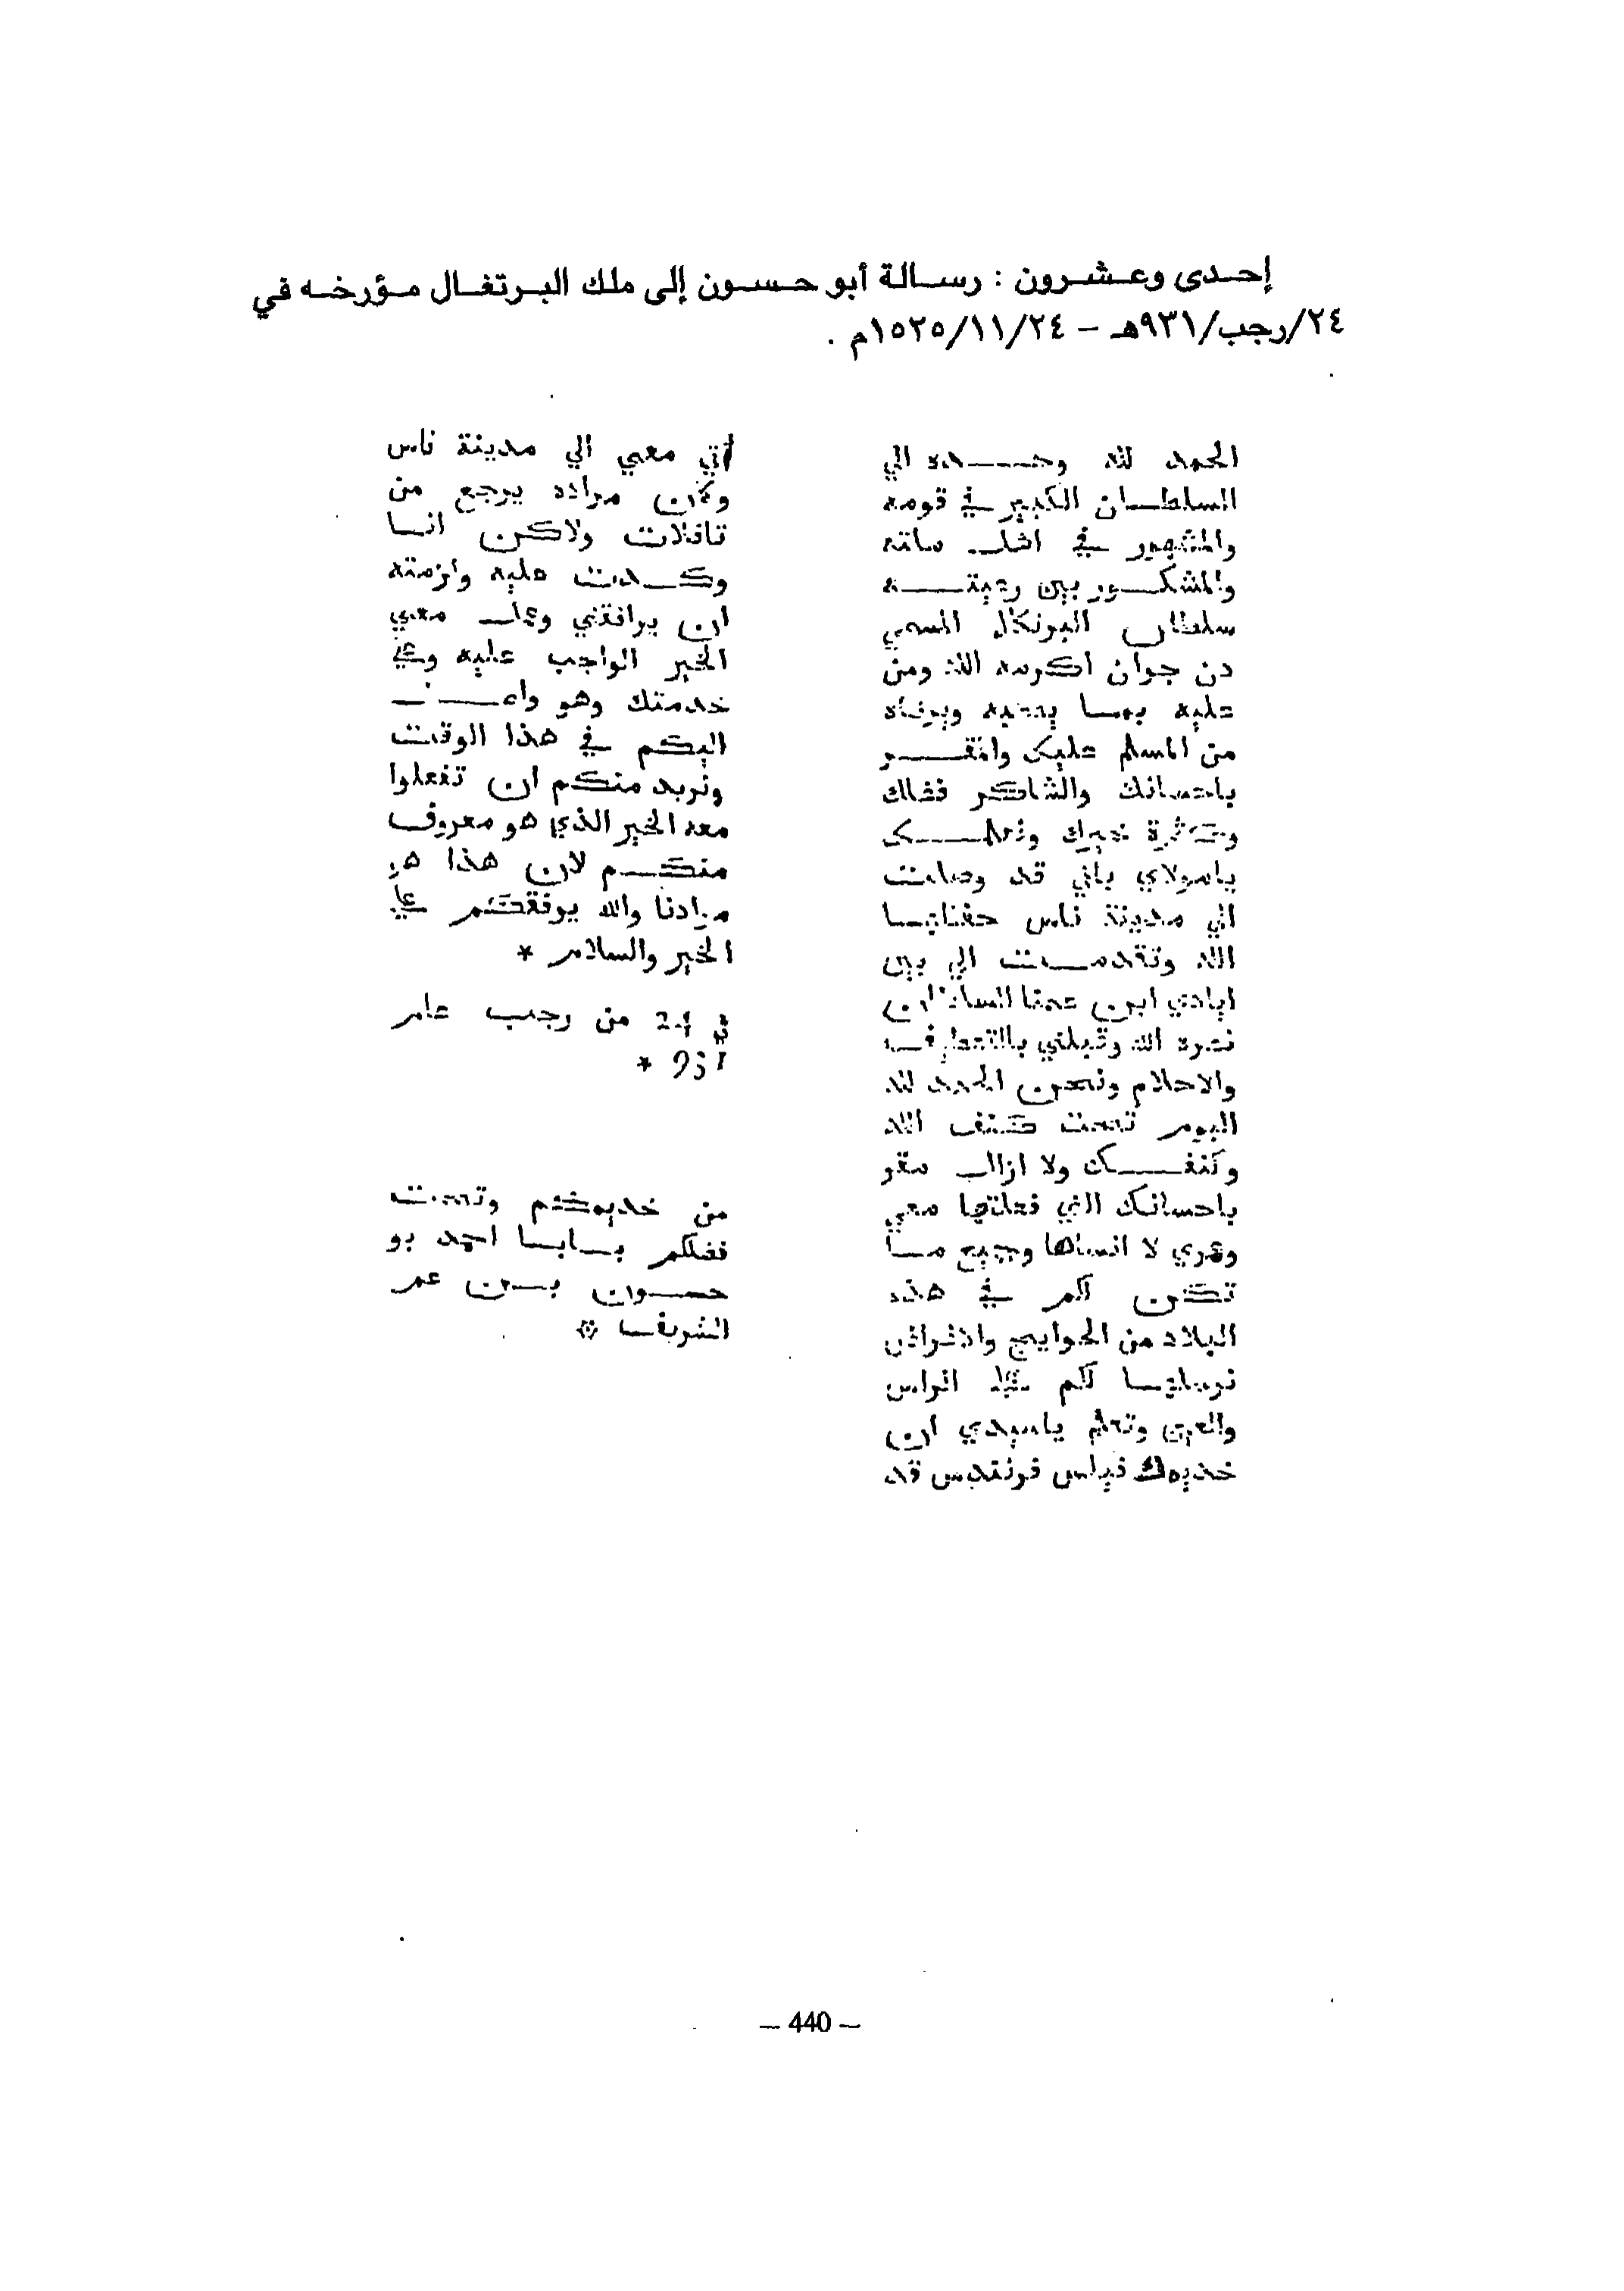 إحدى وعشرون : رسالة أبو حسون إلى ملك البرتغال مؤرخه في
٢٤/رجب/٩٣١هـ – ١٥٢٥/١١/٢٤م .
الحمد لله وحده الي
السلطان الكبير في قومه
والمشهور في
والمشكور بين رعيته
سلطان البرتكال المسمي
دن جوان اكرمه الله ومن
عليه بما ويرضاه
من المسلم عليك والمقر
باحسانك والشاكر فضلك
وكثرة خيرك ونعلمك
يامولاي باني قد وصلت
الي مدينة فاس
الله وتقدمت الي بين
ايادي ابن عمنا السلطان
نصره الله وقبلني
ونحن الحمد لله
اليوم تحت كنف الله
وكنفك ولا ازال مقر
باحسانك التي فعلتها معي
وعمري لا انساها وجميع ما
تكن لكم في هذه
البلاد من الحوايج والاغراض
نرسلها لكم علا الراس
والعين وتعلم ياسيدي ان
خديمك قد
اتي معي الي مدينة فاس
وكان مراده يرجع من
تافلات ولاكن انا
وكدت عليه والزمته
ان يرافقني وعمل معي
الخير الواجب عليه وعلي
خدمتك وهو
اليكم في هذا الوقت
ونريد منكم ان تفعلوا
معه الخير الذي هو معروف
منكم لان هذا هو
مرادنا والله يوفقكم علي
الخير والسلام *
في 24 من رجب عام
931 *
من خديمكم وتحت
فضلكم احمد بو
حسون بن عمر
الشريف
– 440 –